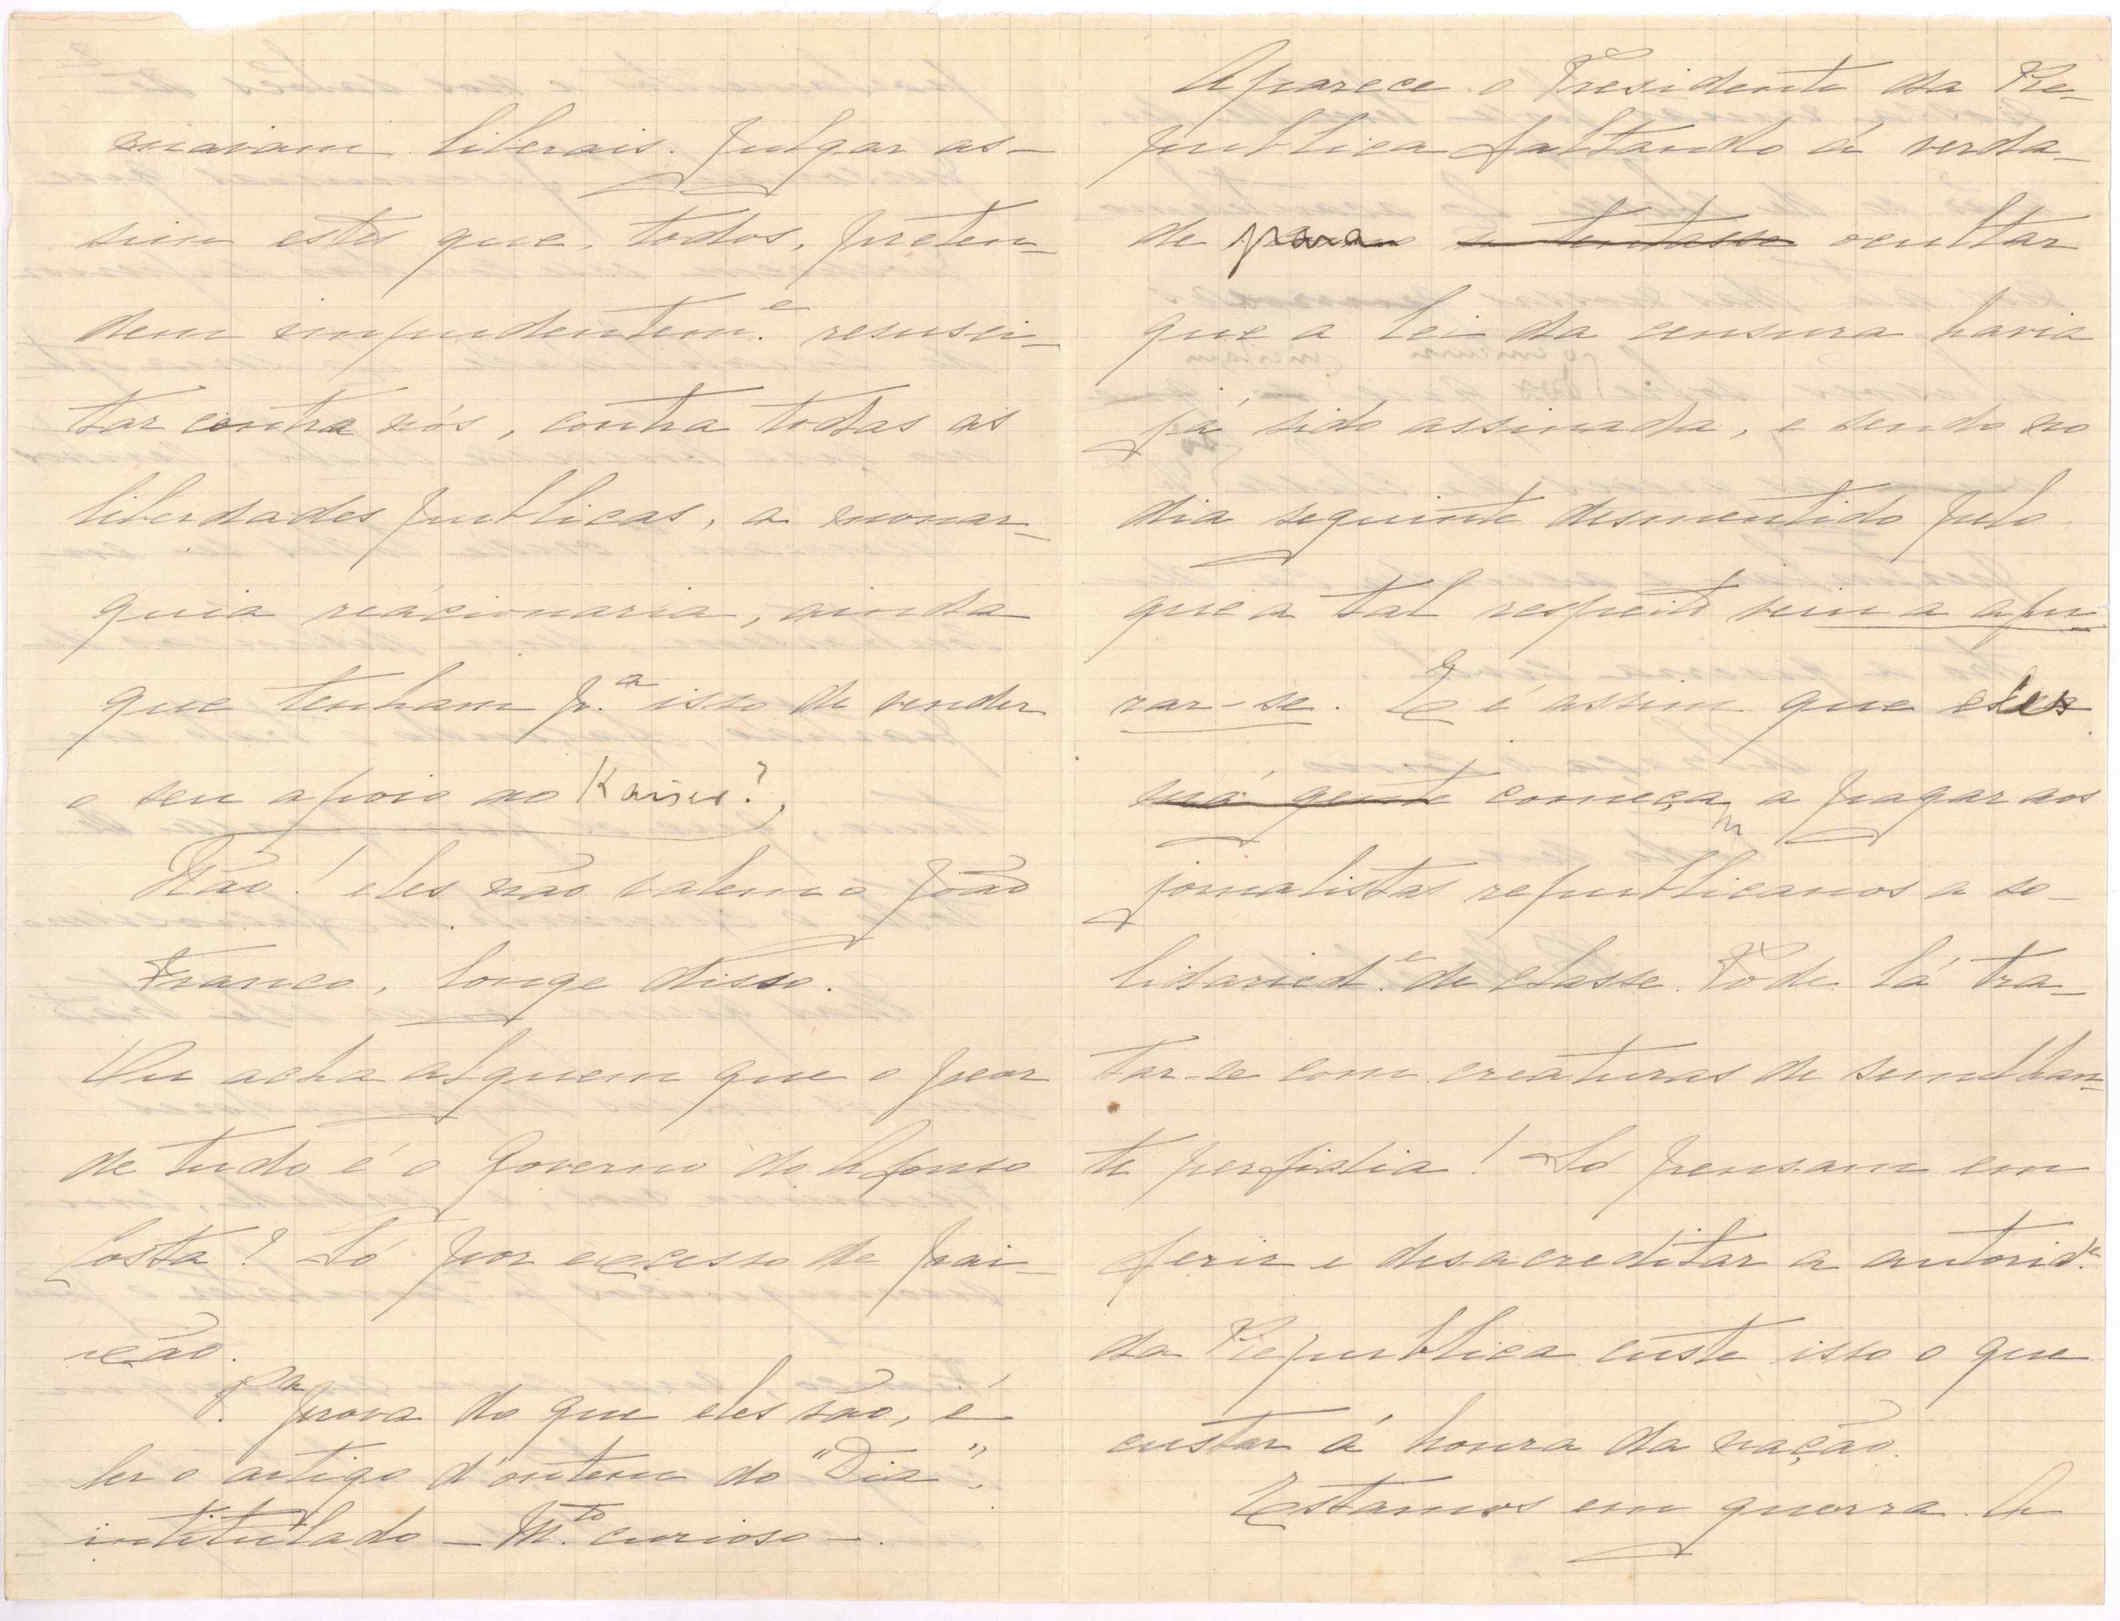 maram liberais. Julgar as-
sim estes que, todos, preten-
dem impudentem.e resusci-
tar contra nós, contra todas as
liberdades publicas, a monar-
quia reácionaria, ainda
que tenham p.a isso de vender
o seu apoio ao Kaiser?
Não! eles não valem o João
Franco, longe disso.
Ou acha alguem que o peor
de tudo é o Governo do Afonso
Costa? Só por excesso de pai-
xão.
P.a prova do que eles são, é
ler o artigo d'ontem do "Dia",
intitulado - M.to curioso -.
Aparece o Presidente da Re-
publica faltando á verda-
de para ocultar
que a lei da censura havia
já sido assinada, e sendo no
dia seguinte desmentido pelo
que a tal respeito vem a apu-
rar-se. E é assim que eles
má gente começam a pagar aos
jornalistas republicanos a so-
lidaried.e de classe. Póde lá tra-
tar-se com creaturas de semelhan-
te perfidia! Só pensam em
ferir e desacreditar a autorid.e
da Republica custe isso o que
custar á honra da nação.
Estamos em guerra. A